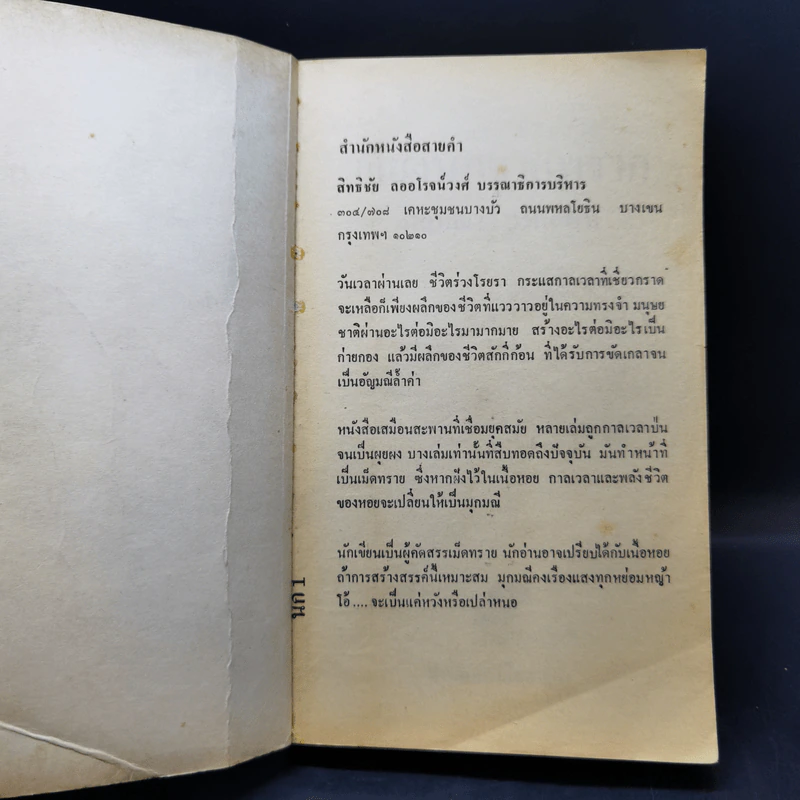 สำนักหนังสือสายคำ
สิทธิชัย ลออโรจน์วงศ์ บรรณาธิการบริหาร
๓๐๔/๗๐๘ เคหะชุมชนบางบัว ถนนพหลโยธิน บางเขน
กรุงเทพฯ ๑๐๒๑๐
วันเวลาผ่านเลย ชีวิตร่วงโรยรา กระแสกาลเวลาที่เชี่ยวกราด
จะเหลือก็เพียงผลึกของชีวิตที่แวววาวอยู่ในความทรงจำ มนุษย
ชาติผ่านอะไรต่อมิอะไรมามากมาย สร้างอะไรต่อมิอะไรเป็น
ก่ายกอง แล้วมีผลึกของชีวิตสักกี่ก้อน ที่ได้รับการขัดเกลาจน
เป็นอัญมณีล้ำค่า
หนังสือเสมือนสะพานที่เชื่อมยุคสมัย หลายเล่มถูกกาลเวลาป่น
จนเป็นผุยผง บางเล่มเท่านั้นที่สืบทอดถึงปัจจุบัน มันทำหน้าที่
เป็นเม็ดทราย ซึ่งหากฝังไว้ในเนื้อหอย กาลเวลาและพลังชีวิต
ของหอยจะเปลี่ยนให้เป็นมุกมณี
นักเขียนเป็นผู้คัดสรรเม็ดทราย นักอ่านอาจเปรียบได้กับเนื้อหอย
ถ้าการสร้างสรรค์นี้เหมาะสม มุกมณีคงเรืองแสงทุกหย่อมหญ้า
โอ้.... จะเป็นแค่หวังหรือเปล่าหนอ
นก 1